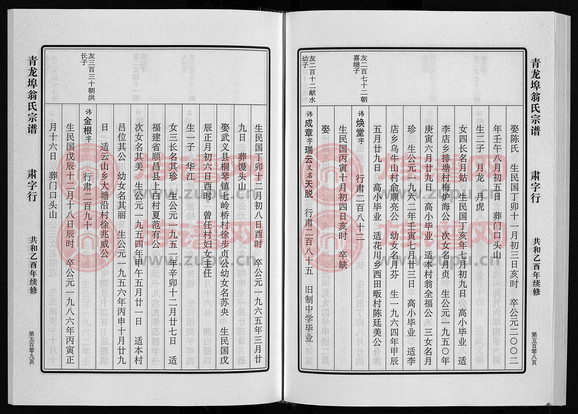 青龙埠翁氏宗谱
肃字行
共和乙酉年续修
娶陈氏 生民国丁卯十二月初三日亥时 卒公元二〇〇二
年壬午八月初五日 葬门口头山
生二子 月龙 月虎
女四长名月姑 生民国丁亥年七月初九日 适
李店乡排塘村梅炉海公 次女名月贞 生公元一九五〇年
庚寅六月廿九日 高小毕业 适本村翁全福公 三女名月
珍 生公元一九六二年壬寅七月廿三日 高小毕业 适李
店乡乌牛山村俞顺亮公 幼女名月芬 生一九六四年甲辰
五月廿九日 高小毕业 适花川乡西田畈村陈廷美公
友二百七十二朝
喜继子
讳焕堂字 行肃二百八十二
生民国丙寅十月初四日亥时 卒缺
娶
友二百十二献水
幼子
讳成章字瑞云又名天脱 行肃二百八十五 旧制中学毕业
生民国丁卯十二月初八日酉时 卒公元一九六五年三月廿
九日 葬馒头山
娶武义县桐琴镇七岭桥村徐步贞公幼女名苏央 生民国戊
辰正月初六日酉时 曾任村妇女主任
生一子 华江
女三长名其珍 生公元一九五一年辛卯十二月廿七日 适
福建省顺昌县上白村夏范有公
次女名其美 生公元一九五四年甲午五月廿一日 适本村
吕位其公 幼女名其丽 生公元一九五六年丙申十月廿九
日 适云山乡大塘沿村徐兆威公
友三百三十朝洪
长子
讳金根字 行肃二百九十
生民国戊辰十二月十八日辰时 卒公元一九八六年丙寅正
月十六日 葬门口头山
青龙埠翁氏宗谱
肃字行
共和乙酉年续修